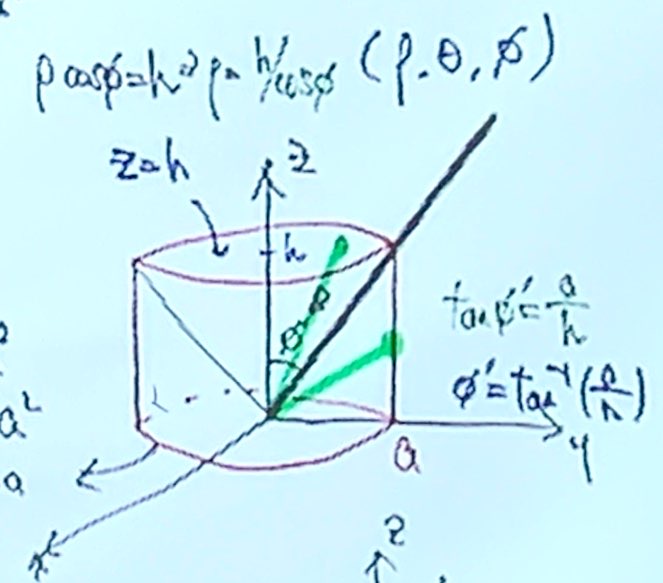 ρ cosφ = h → ρ = h/cosφ (ρ, θ, φ)
z=h
z
h
tan φ' = a/h
φ' = tan⁻¹(a/h)
a²
a
a
y
x
z